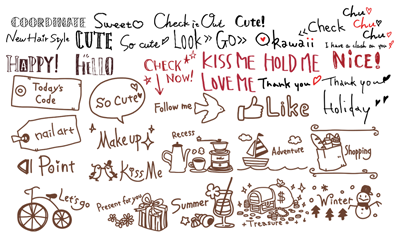 COORDINATE
Sweet
Check it Out
Cute!
Chu
Chu
Chu
New Hair Style
CUTE
So cute
Look»
Go»
Okawaii
«Check
I have a crush on you
HAPPY!
Hello
CHECK NOW!
KISS ME
HOLD ME
NICE!
LOVE ME
Thank you
Thank you
Today's Code
So Cute
Follow me
Like
Holiday
nail art
Make up
Recess
Adventure
Shopping
Point
Kiss Me
Let's go
Present for you
Summer
Treasure
Winter